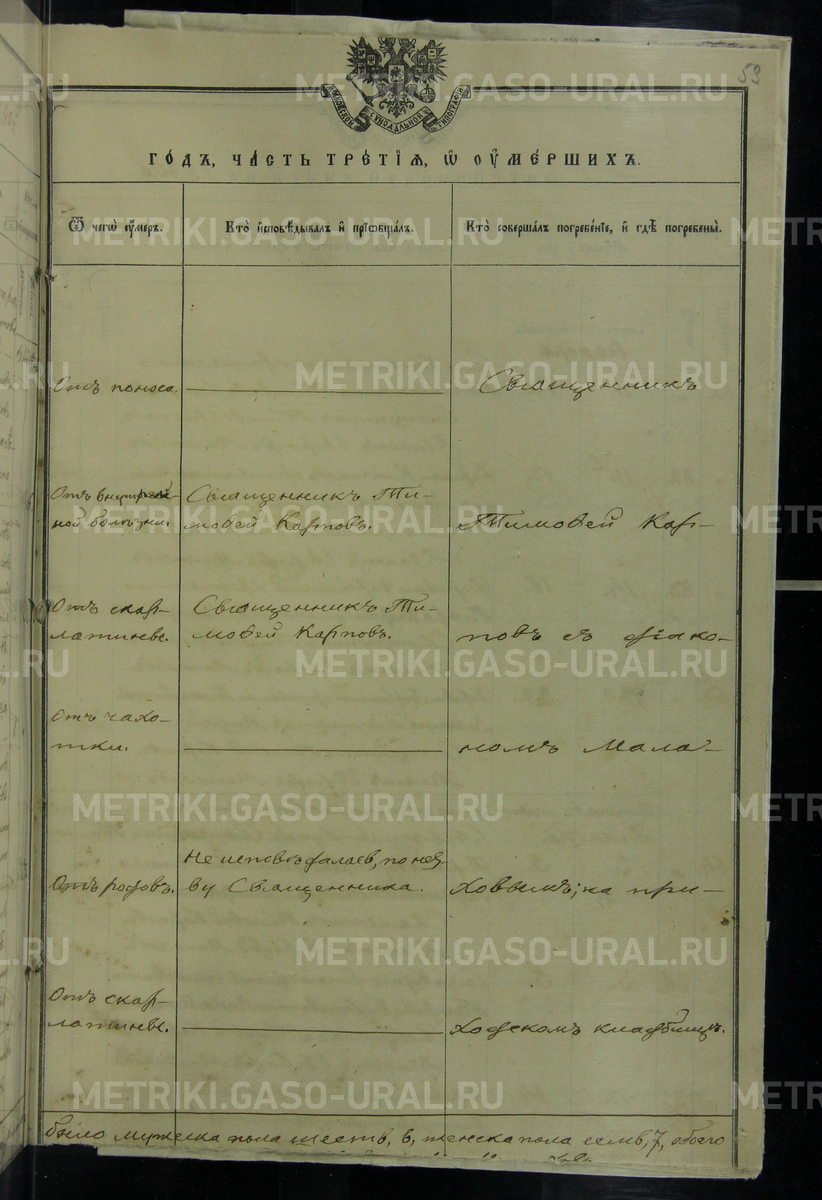 59
СѴНОДАЛЬНОЙ
ГО́ДЪ, ЧА́СТЬ ТРЕ́ТІѦ, Ѡ̑ ОУ҆МЕ́РШИХЪ.
Ѿ чегѡ̀ оу҆́меръ.
Кто̀ и҆сповѣ́дывалъ и҆ прїѡбща́лъ.
Кто̀ соверша́лъ погребе́нїе, и҆ гдѣ̀ погребены̀.
Отъ поноса.
Священникъ
Отъ внутрен-
ной болѣзни.
Священникъ Ти-
моѳей Карповъ.
Тимоѳей Кар-
Отъ скар-
латины.
Священникъ Ти-
моѳей Карповъ.
повъ съ діако-
Отъ чахо-
тки.
номъ Мала-
Отъ родовъ.
Не исповѣдалась, по нез
ву Священника.
ховымъ; на при-
Отъ скар-
латины.
ходскомъ кладбищѣ.
было мужеска пола шесть, 6, женска пола семь, 7, обоего
METRIKI.GASO-URAL.RU